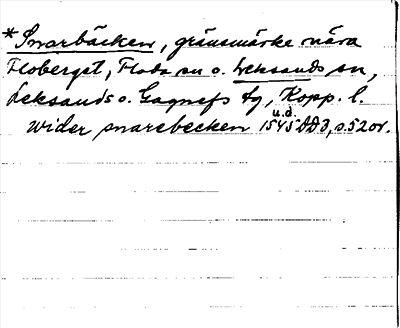 *Snarbäcken, gränsmärke nära
Floberget, Floda sn o. Leksands sn,
Leksands o. Gagnefs tg, Kopp. l.
wider snarebecken 1545 u.d. DD3, s. 52 or.